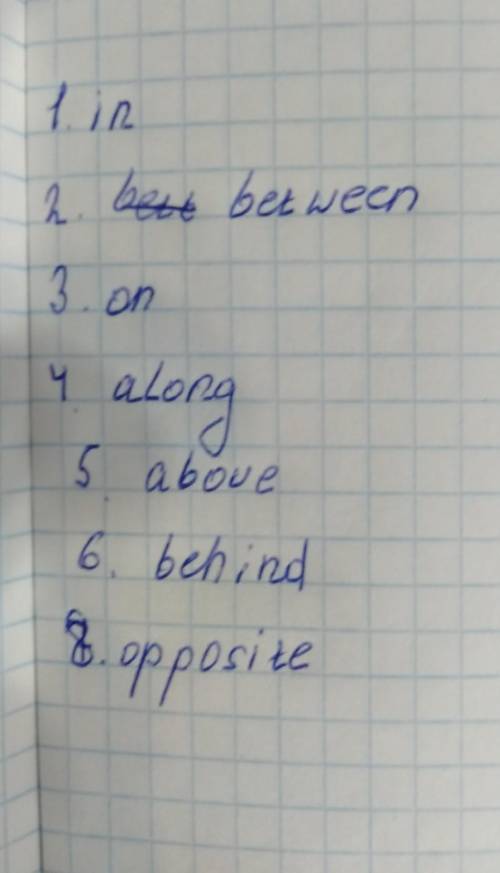 1. in
2. between
3. on
4. along
5. above
6. behind
8. opposite